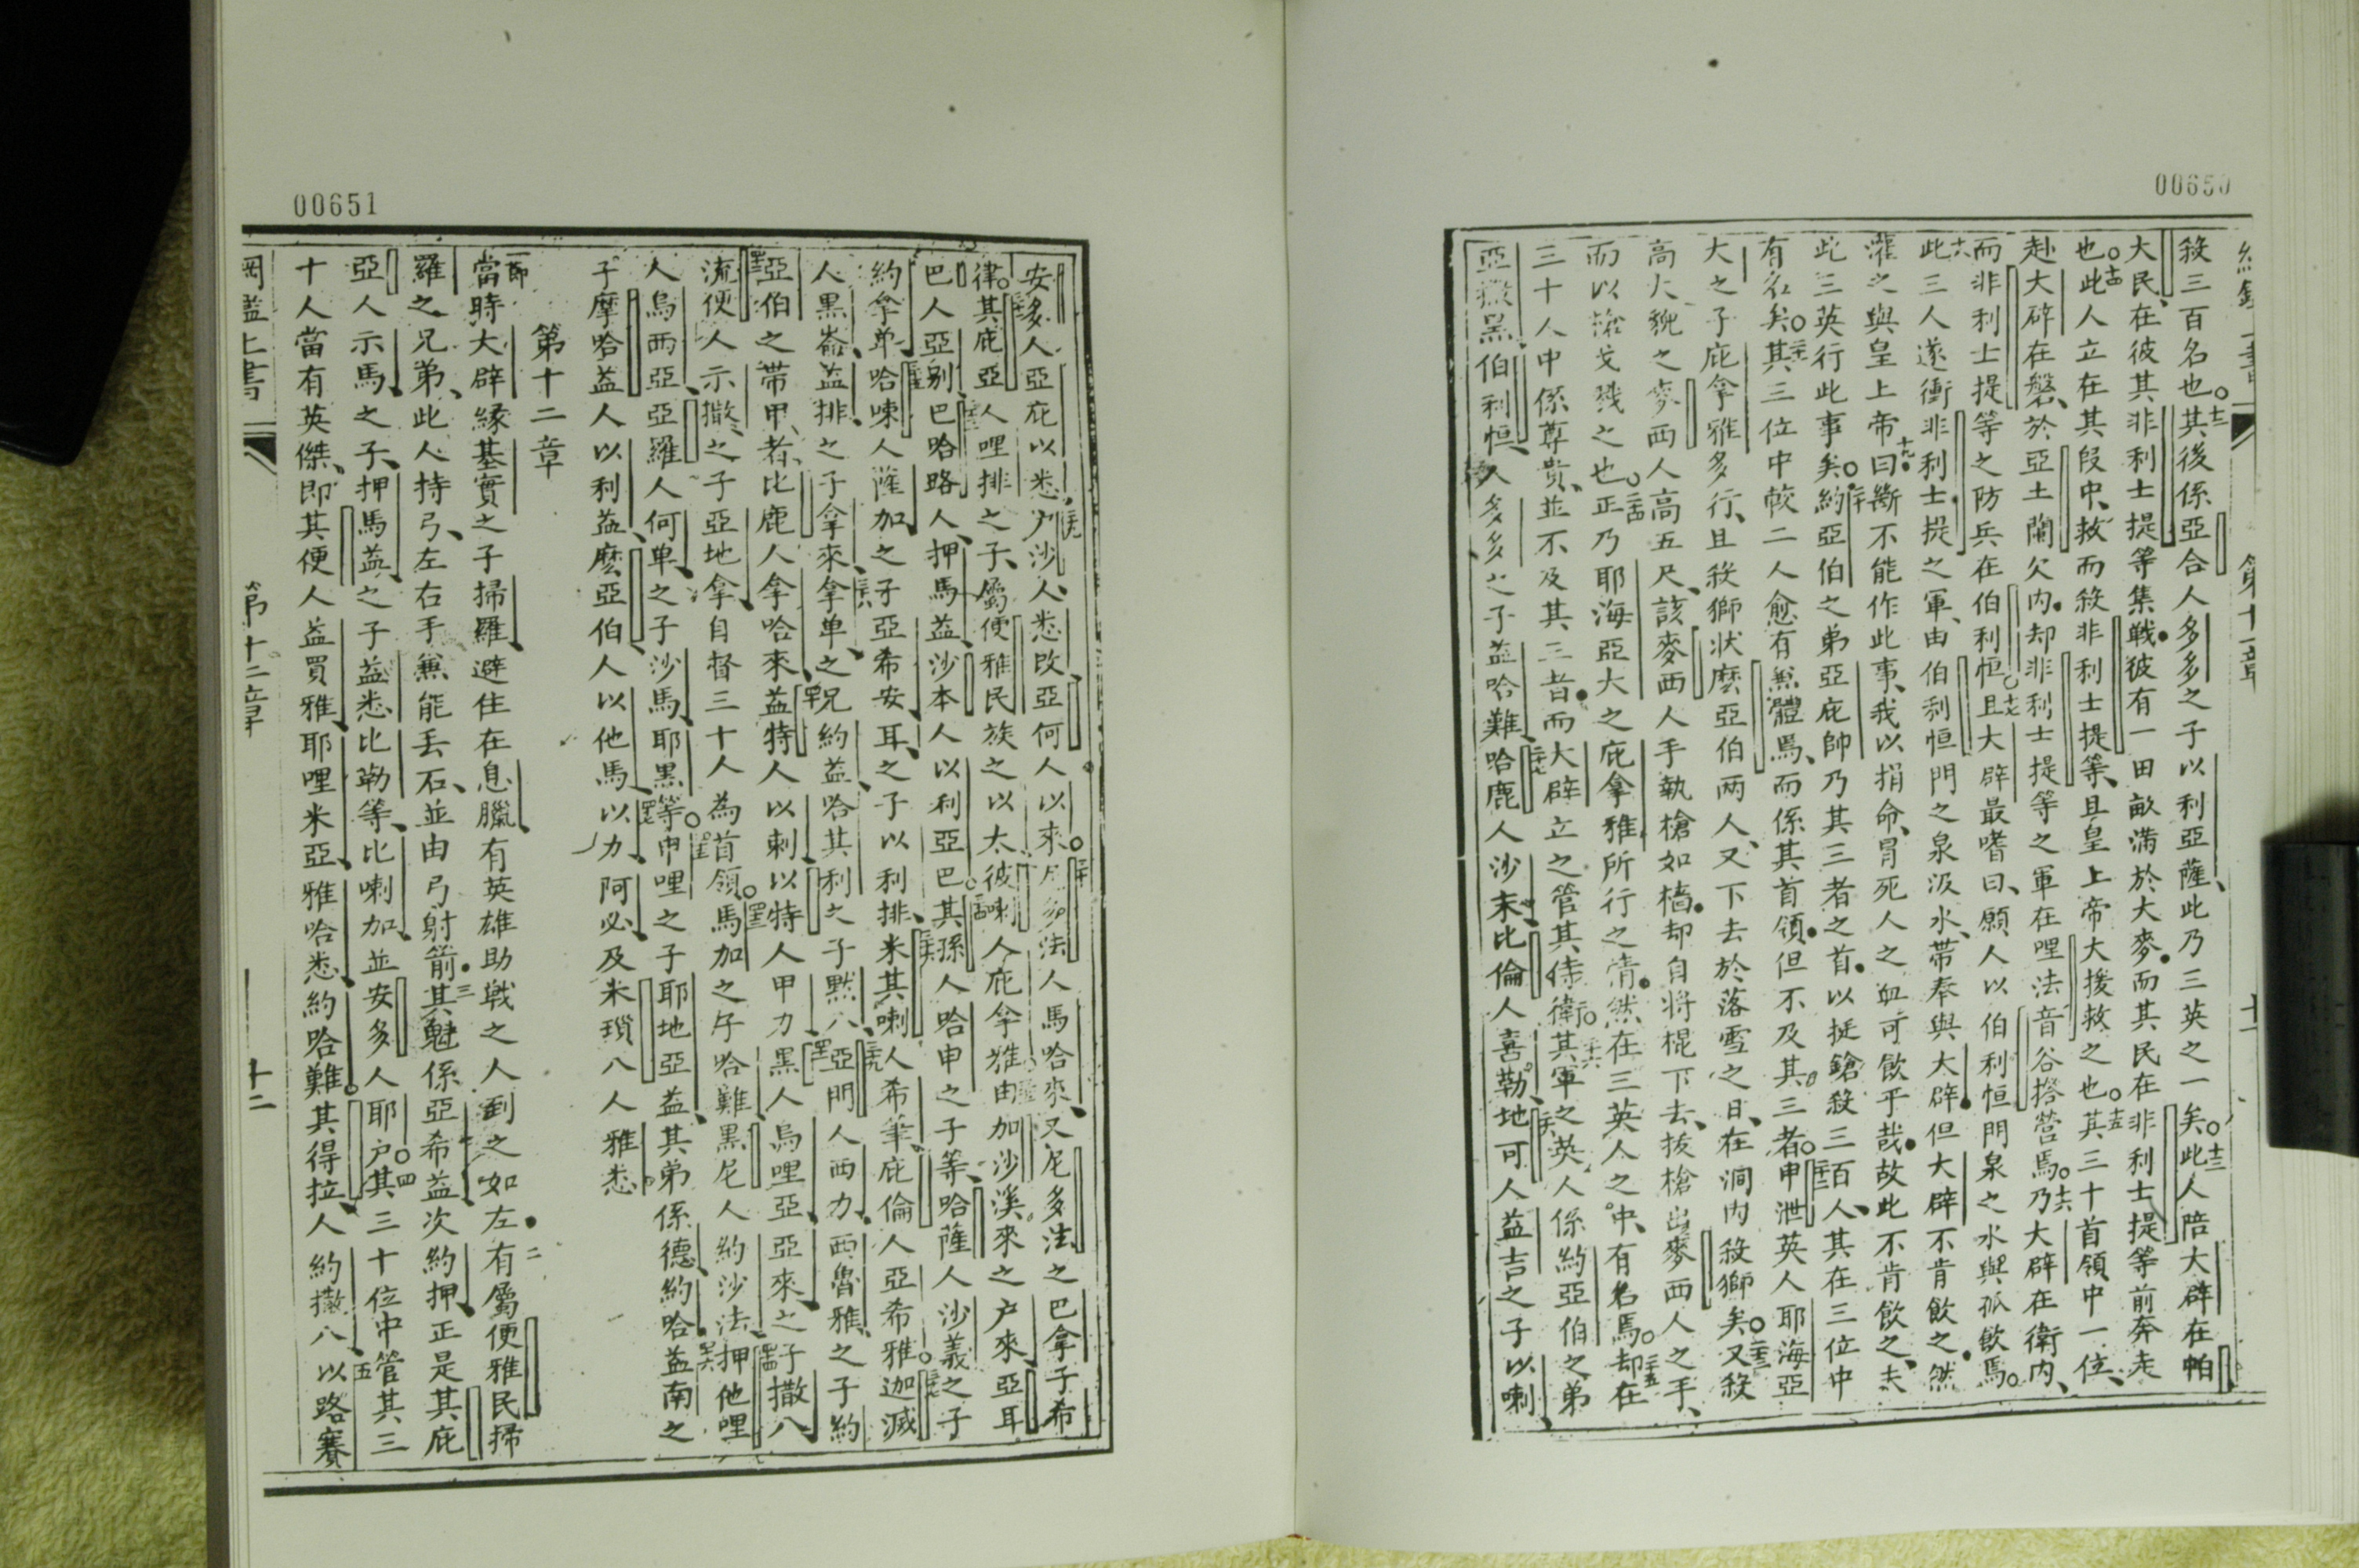 00650
殺三百名也其後係亞合人多多之子以利亞薩此乃三英之一矣此人陪大辟在帕
大民在彼其非利士提等集戰彼有一田畝滿於大麥而其民在非利士提等前奔走
也此人立在其段中救而殺非利士提等且皇上帝大援救之也其三十首領中一位
赴大辟在磐於亞土蘭穴內却非利士提等之軍在哩法音谷搭營焉乃大辟在衛內
而非利士提等之防兵在伯利恒且大辟最嗜曰願人以伯利恒門泉之水與孤飲焉
此三人遂衝非利士提之軍由伯利恒門之泉汲水帶奉與大辟但大辟不肯飲之然
灌之與皇上帝曰斷不能作此事我以捐命冒死人之血可飲乎哉故此不肯飲之夫
此三英行此事矣約亞伯之弟亞庇帥乃其三者之首以挺鎗殺三百人其在三位中
有名矣其三位中較二人愈有無體焉而係其首領但不及其三者耶海亞
大之子庇拿雅多行且殺獅狀麼亞伯兩人又下去於落雪之日在澗內殺獅矣又殺
高大貌之麥西人高五尺該麥西人手執槍如樯却自將棍下去拔槍出麥西人之手
而以槍戈戮之也正乃耶海亞大之庇拿雅所行之情然在三英人之中有名焉却在
三十人中係尊貴並不及其三者而大辟立之管其侍衛其軍之英人係約亞伯之弟
亞撒黑伯利恒人多多之子益哈難哈鹿人沙末比倫人喜勒地可人益吉之子以喇
第十一章
十一
00651
安多人亞庇以悉户沙人悉改亞何人以來尼多法人馬哈來又尼多法之巴拿子希
律其庇亞人哩排之子屬便雅民族之以太彼喇人庇拿雅由加沙溪來之户來亞耳
巴人亞别巴哈路人押馬益沙本人以利亞巴其孫人哈申之子等哈薩人沙義之子
約拿單哈喇人薩加之子亞希安耳之子以利排米其喇人希筆庇倫人亞希雅迦滅
人黑崙益排之子拿來拿单之兄約益哈其利之子黙八亞門人西力西魯雅之子約
亞伯之帶甲者比鹿人拿哈來益特人以剌以特人甲力黑人烏哩亞亞來之子撒八
流便人示撒之子亞地拿自督三十人為首領馬加之子哈難黑尼人約沙法押他哩
人烏西亞亞羅人何单之子沙馬耶黑等申哩之子耶地亞益其弟係德約哈益南之
子摩哈益人以利益麼亞伯人以他馬以力阿必及米瑣八人雅悉
第十二章
一節
當時大辟緣基實之子掃羅避住在息臘有英雄助戰之人到之如左有屬便雅民掃
羅之兄弟此人持弓左右手無能丢石並由弓射箭其魁係亞希益次約押正是其庇
亞人示馬之子押馬益之子益悉比勒等比喇加並安多人耶户其三十位中管其三
十人當有英傑即其便人益買雅耶哩米亞雅哈悉約哈難其得拉人約撒八以路賽
第十二章
十二